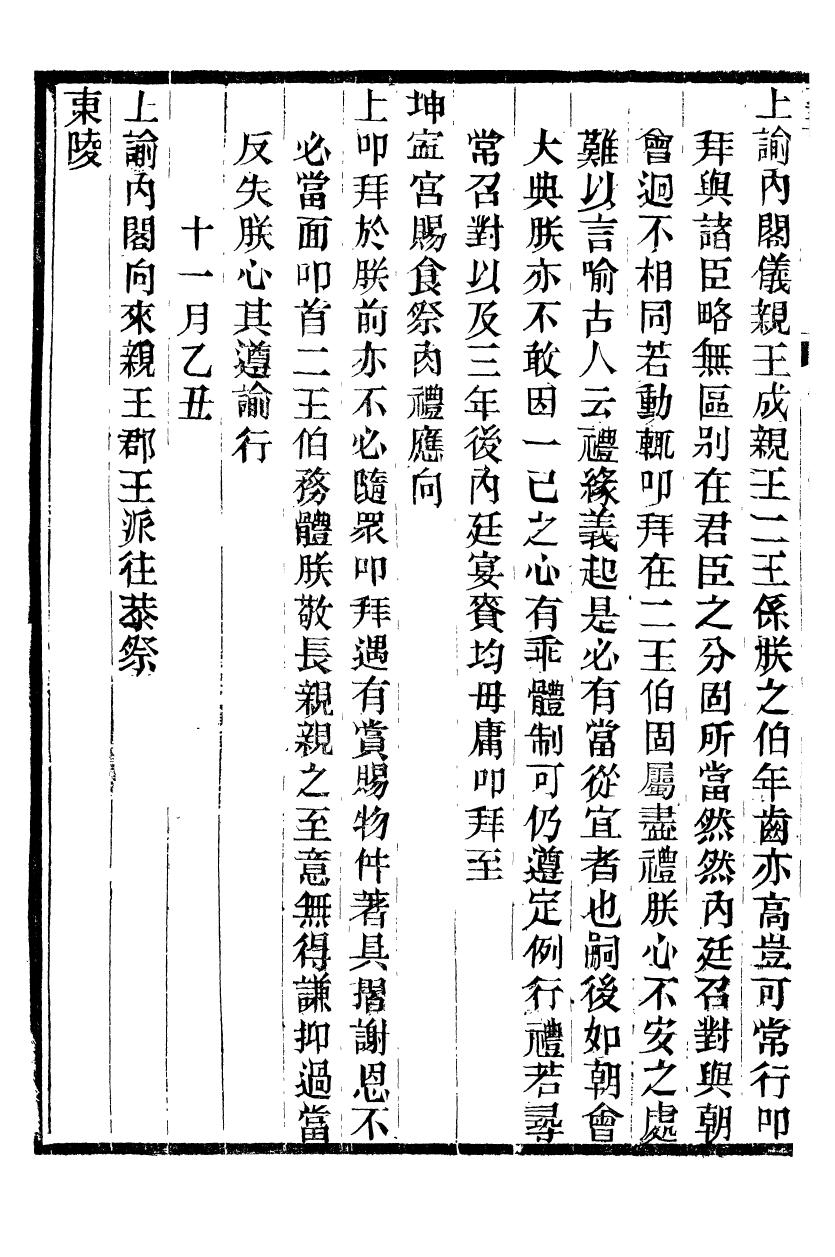 上諭內閣儀親王成親王二王係朕之伯年齒亦高豈可常行叩
拜與諸臣略無區別在君臣之分固所當然然內廷召對與朝
會迥不相同若動輒叩拜在二王伯固屬盡禮朕心不安之處
難以言喻古人云禮緣義起是必有當從宜者也嗣後如朝會
大典朕亦不敢因一己之心有乖體制可仍遵定例行禮若尋
常召對以及三年後內廷宴賚均毋庸叩拜至
坤寍宮賜食祭肉禮應向
上叩拜於朕前亦不必隨眾叩拜遇有賞賜物件著具摺謝恩不
必當面叩首二王伯務體朕敬長親親之至意無得謙抑過當
反失朕心其遵諭行
十一月乙丑
上諭內閣向來親王郡王派往恭祭
東陵